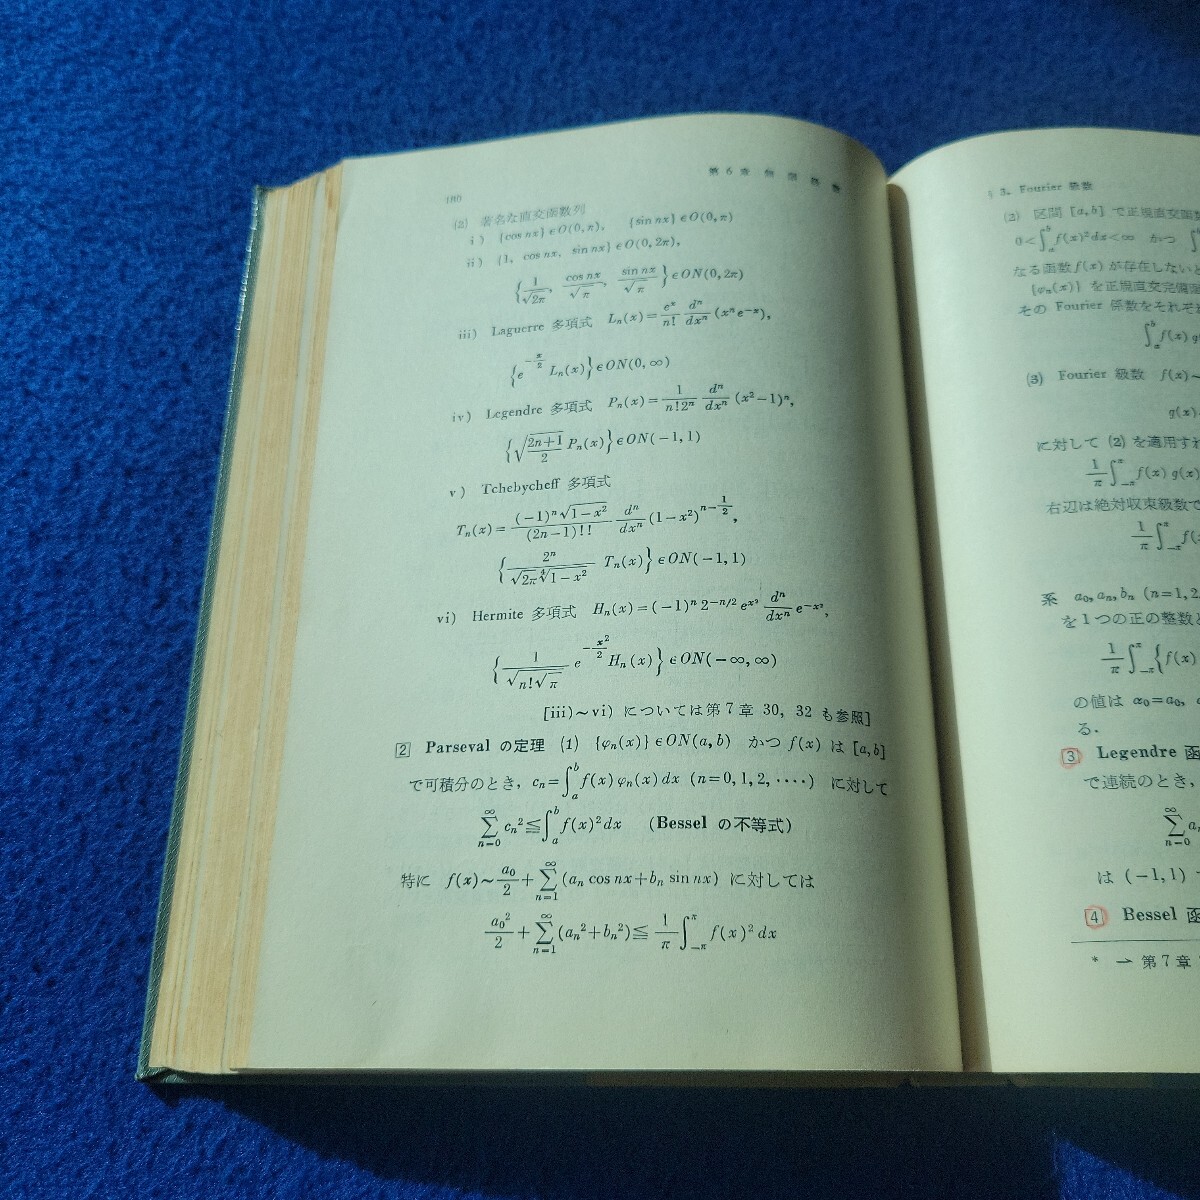 180
第6章 無限級数
(2) 著名な直交函数列
i) {cos nx}∈O(0,π), {sin nx}∈O(0,π)
ii) {1, cos nx, sin nx}∈O(0,2π),
{1/√2π, cos nx/√π, sin nx/√π}∈ON(0,2π)
iii) Laguerre 多項式 Lₙ(x)=eˣ/n! dⁿ/dxⁿ (xⁿe⁻ˣ),
{e^(-x/2) Lₙ(x)}∈ON(0,∞)
iv) Legendre 多項式 Pₙ(x)=1/(n!2ⁿ) dⁿ/dxⁿ (x²−1)ⁿ,
{√((2n+1)/2) Pₙ(x)}∈ON(−1,1)
v) Tchebycheff 多項式
Tₙ(x)=(−1)ⁿ√(1−x²)/(2n−1)!! dⁿ/dxⁿ (1−x²)^(n−1/2),
{2ⁿ/(√2π ⁴√(1−x²)) Tₙ(x)}∈ON(−1,1)
vi) Hermite 多項式 Hₙ(x)=(−1)ⁿ 2^(−n/2) e^(x²) dⁿ/dxⁿ e^(−x²),
{1/√(n!√π) e^(−x²/2) Hₙ(x)}∈ON(−∞,∞)
[iii)~vi) については第7章 30, 32 も参照]
2 Parseval の定理 (1) {φₙ(x)}∈ON(a,b) かつ f(x) は [a,b]
で可積分のとき, cₙ=∫ₐᵇ f(x)φₙ(x)dx (n=0,1,2,‥‥) に対して
∑_(n=0)^∞ cₙ²≦∫ₐᵇ f(x)²dx (Bessel の不等式)
特に f(x)~a₀/2+∑_(n=1)^∞ (aₙ cos nx+bₙ sin nx) に対しては
a₀²/2+∑_(n=1)^∞ (aₙ²+bₙ²)≦1/π ∫_(−π)^π f(x)²dx
§3. Fourier 級数
(2) 区間 [a,b] で正規直交函
0<∫ₐᵇ f(x)²dx<∞ かつ ∫
なる函数 f(x) が存在しないと
{φₙ(x)} を正規直交完備
その Fourier 係数をそれぞ
∫ₐᵇ f(x) g
(3) Fourier 級数 f(x)~
g(x)
に対して (2) を適用すれ
1/π ∫_(−π)^π f(x) g(x)
右辺は絶対収束級数で
1/π ∫_(−π)^π f(
系 a₀, aₙ, bₙ (n=1,2
を1つの正の整数と
1/π ∫_(−π)^π {f(x)
の値は α₀=a₀,
る.
3 Legendre 函
で連続のとき,
∑_(n=0)^∞ a
は (−1,1)
4 Bessel 函
* → 第7章